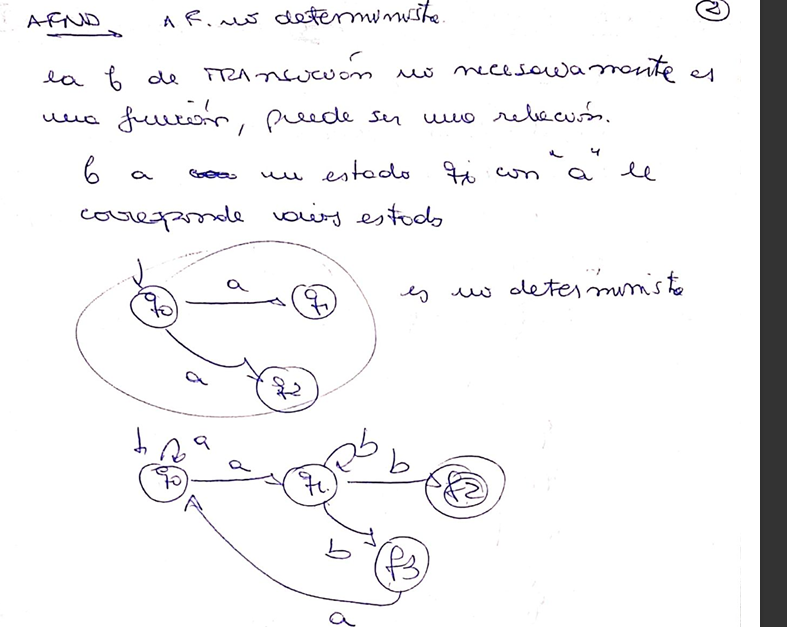 AFND A F. no determinista.
2
la f de TRAnsición no necesariamente es
una función, puede ser una relación.
f a un estado qi con "a" le
corresponde varios estado
q0 a q1 es no determinista
a q2
a
q0 a q1 b b q2
b q3
a